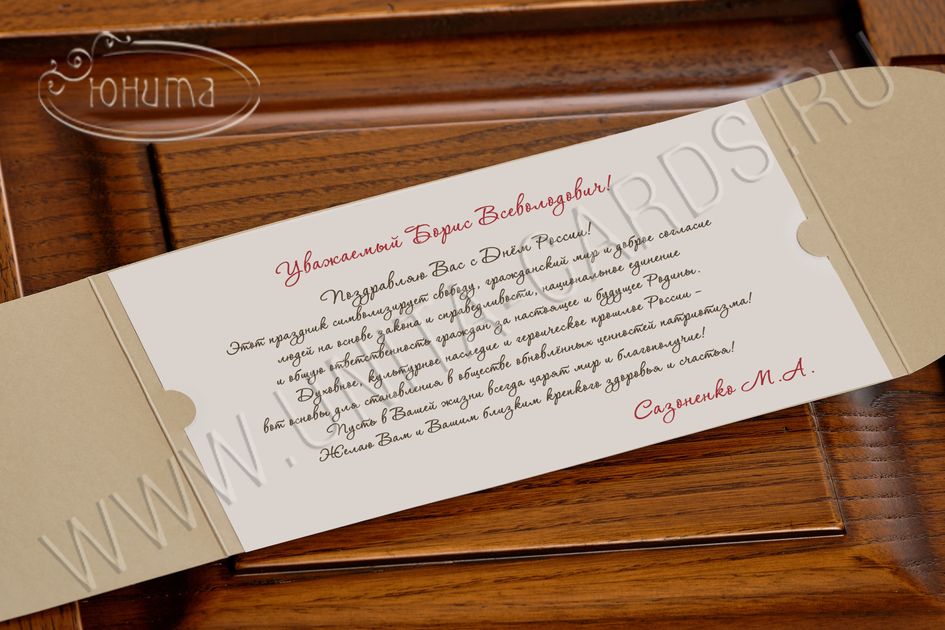 Юнита
Уважаемый Борис Всеволодович!
Поздравляю Вас с Днём России!
Этот праздник символизирует свободу, гражданский мир и доброе согласие
людей на основе закона и справедливости, национальное единение
и общую ответственность граждан за настоящее и будущее Родины.
Духовное, культурное наследие и героическое прошлое России –
вот основы для становления в обществе обновлённых ценностей патриотизма!
Пусть в Вашей жизни всегда царят мир и благополучие!
Желаю Вам и Вашим близким крепкого здоровья и счастья!
Сазоненко М.А.
WWW.UNITA-CARDS.RU